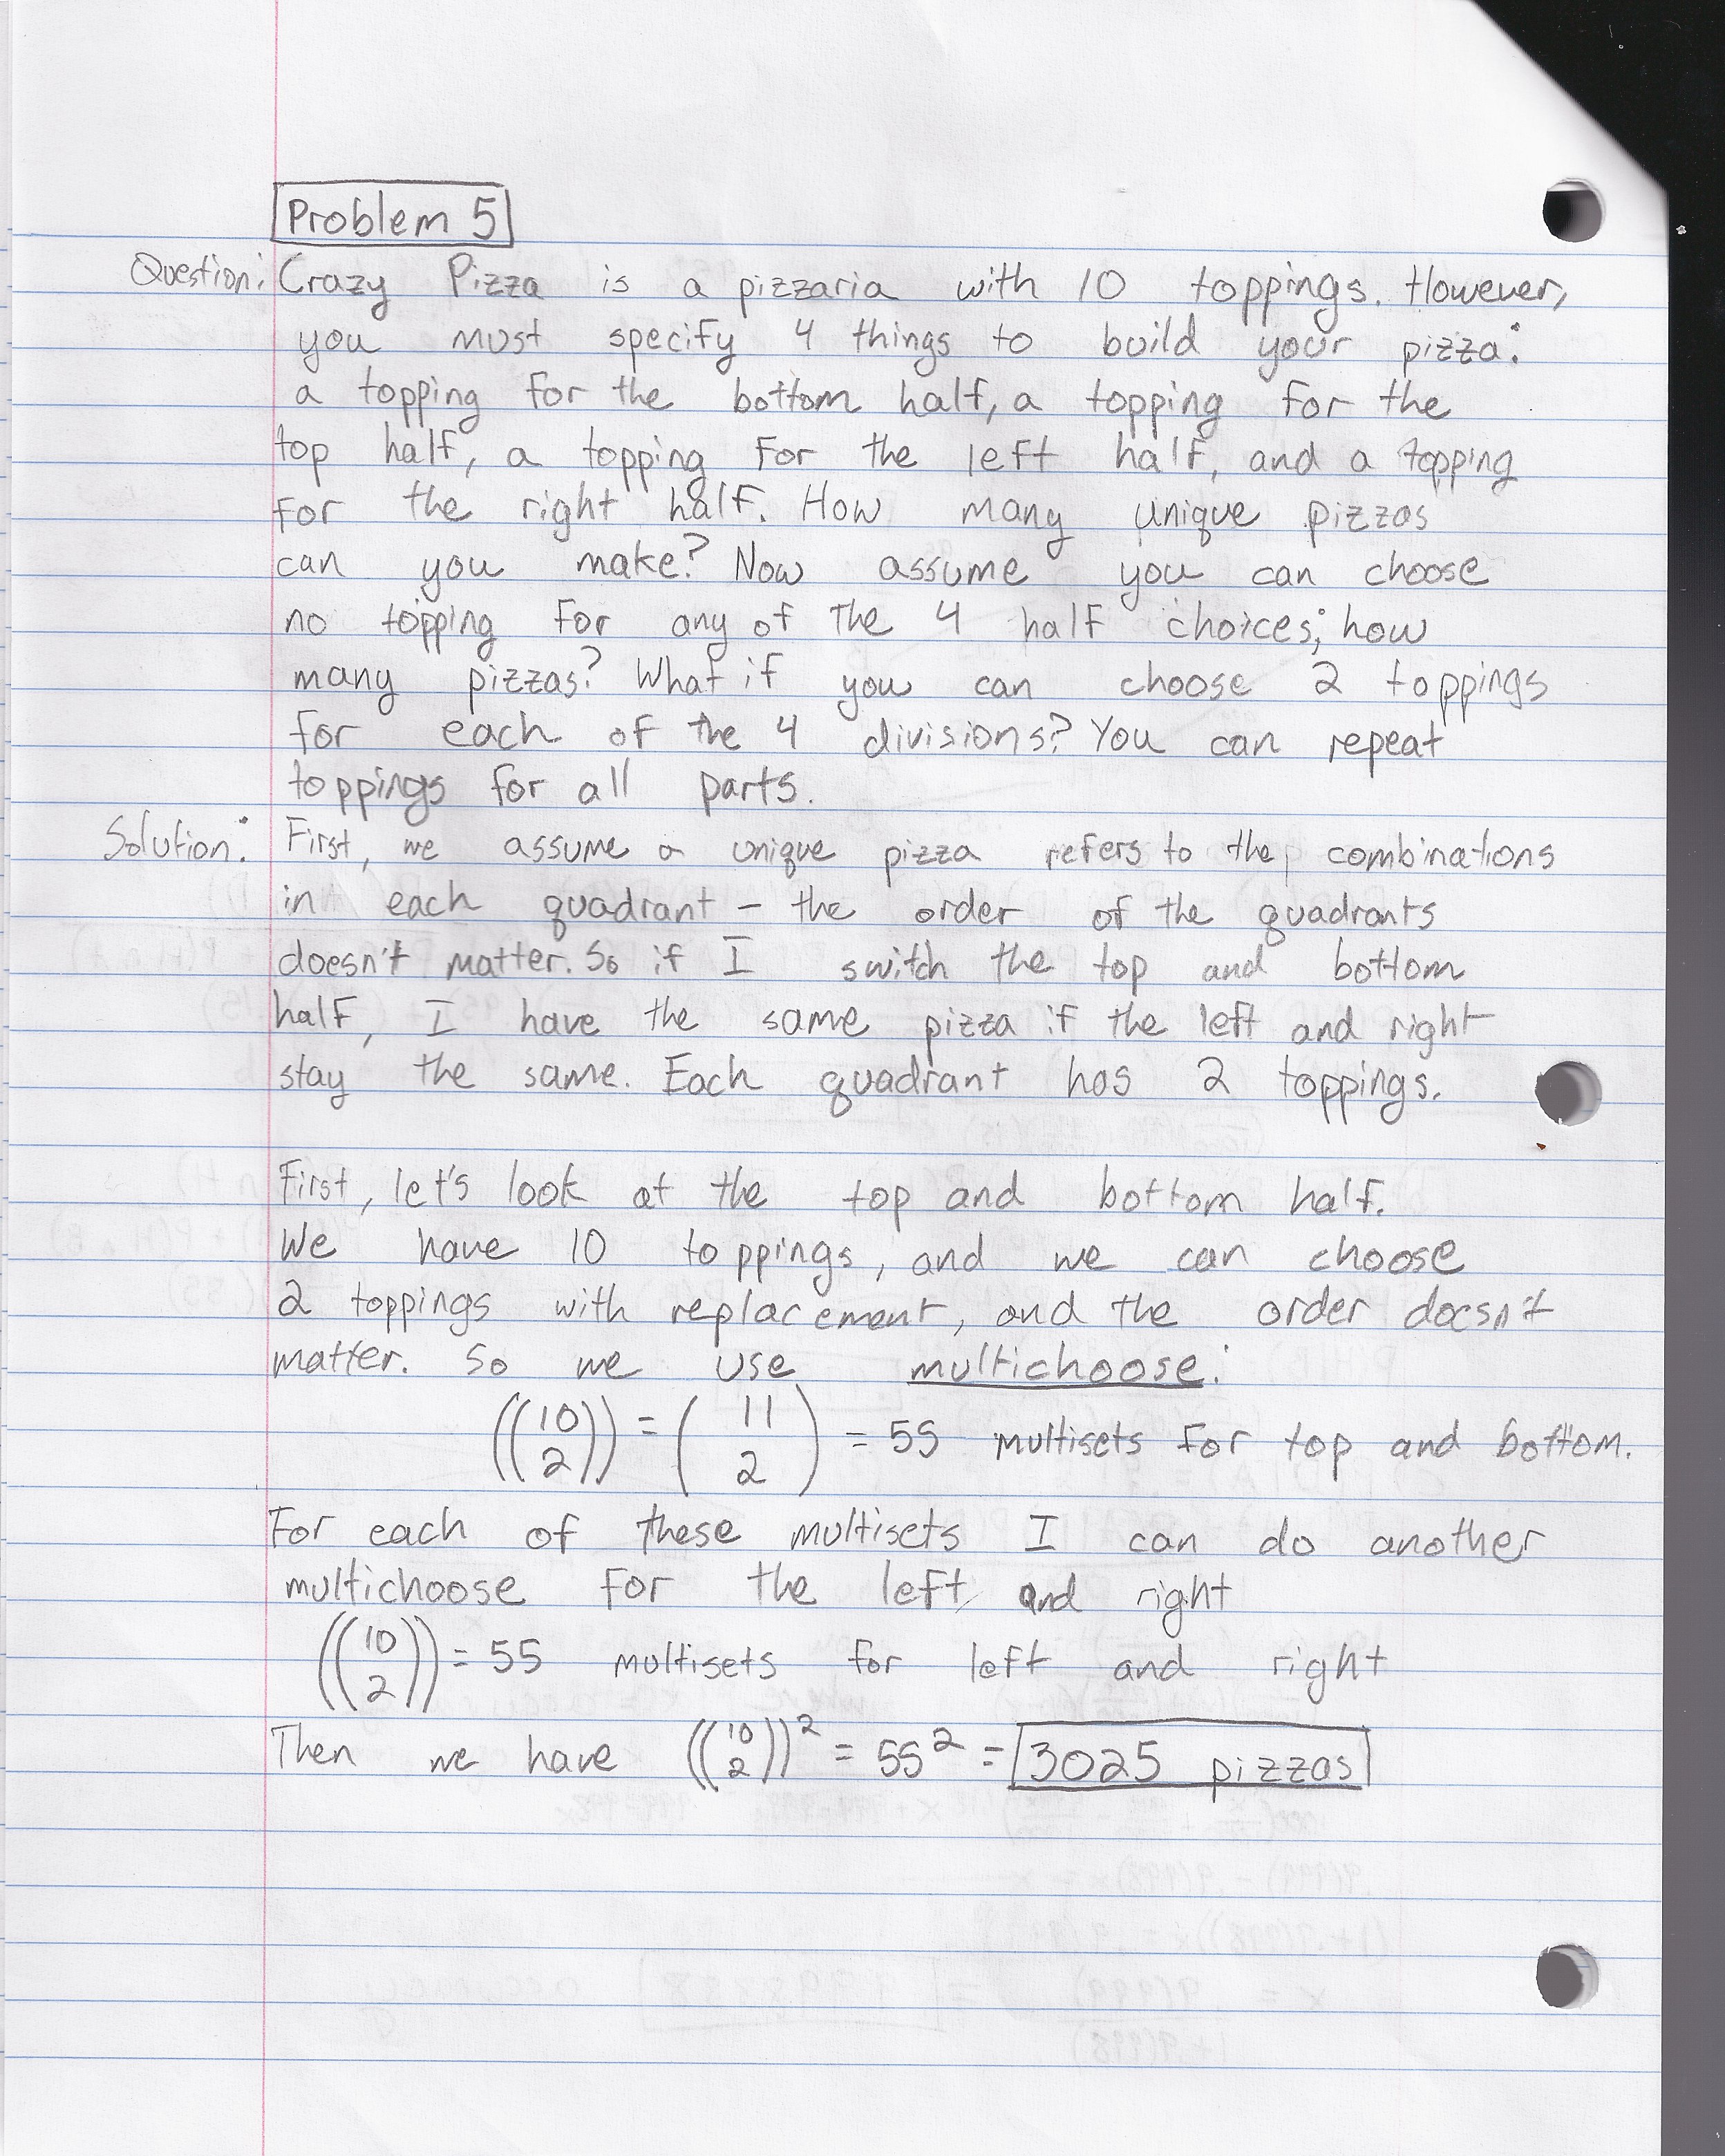 Problem 5
Question: Crazy Pizza is a pizzaria with 10 toppings. However,
you must specify 4 things to build your pizza:
a topping for the bottom half, a topping for the
top half, a topping for the left half, and a topping
for the right half. How many unique pizzas
can you make? Now assume you can choose
no topping for any of the 4 half choices; how
many pizzas? What if you can choose 2 toppings
for each of the 4 divisions? You can repeat
toppings for all parts.
Solution: First, we assume a unique pizza refers to the combinations
in each quadrant - the order of the quadrants
doesn't matter. So if I switch the top and bottom
half, I have the same pizza if the left and right
stay the same. Each quadrant has 2 toppings.
First, let's look at the top and bottom half.
We have 10 toppings, and we can choose
2 toppings with replacement, and the order doesn't
matter. So we use multichoose:
((10 2)) = (11 2) = 55 multisets for top and bottom.
For each of these multisets I can do another
multichoose for the left and right
((10 2)) = 55 multisets for left and right
Then we have ((10 2))² = 55² = 3025 pizzas